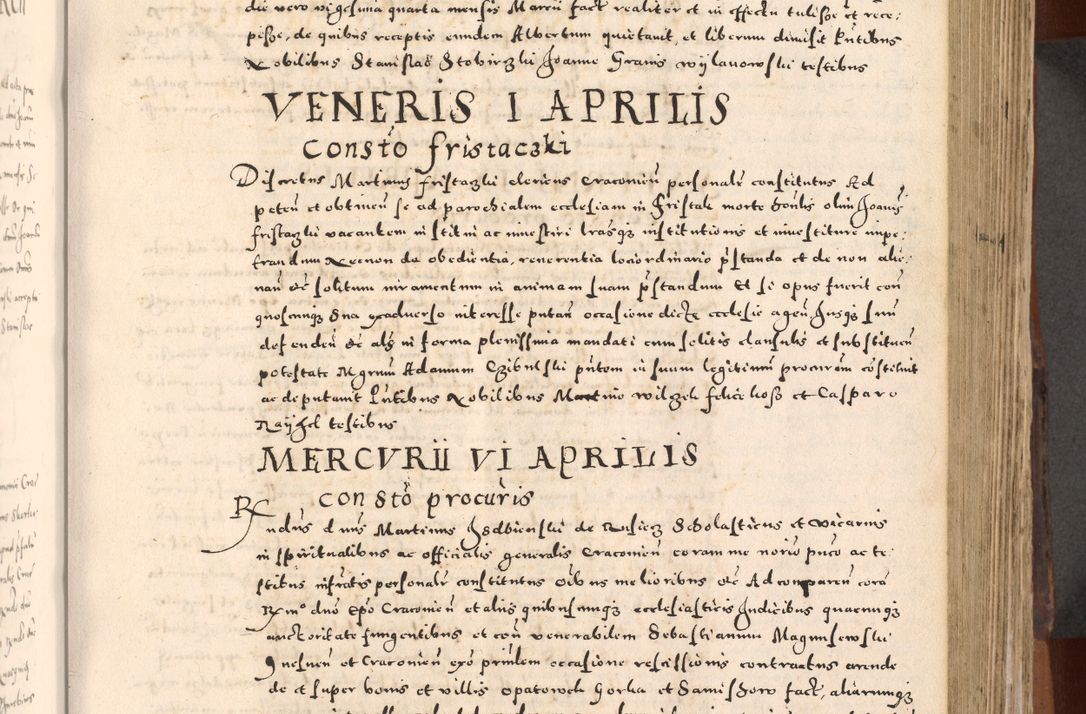 die vero vigesima quarta mensis Marcii fact realiter et in effectu tulisse et rece:
pisse, de quibus receptis eundem Albertum quietavit, et liberum dimisit Pntibus
Nobilibus Stanislao Stobirzki Joanne Grams wylanowski testibus
VENERIS I APRILIS
Consto fristaczki
Discretus Martinus fristazki clericus Cracovien personalr constitutus Ad
peten et obtinen se ad parochialem ecclesiam in fristak morte olim Joanis
fristazki vacantem institui ac investiri lrasqz institutionis et investiture impe:
trandum Necnon de obedientia, reverentia loci ordinario pstanda et de non alie:
nan etc solitum iuramentum in animam suam pstandum Et si opus fuerit con
quoscunqz sua exadverso interesse putan occasione dicte ecclesie agen Jusqz suu
defenden etc als in forma plenissima mandati cum solitis clausulis et substituen
potestate Mgrum Adamum Czibulski pntem in suum legitimu procurem costituit
ac deputavit Pntibus Nobilibus Martino wilzek felice et Casparo
testibus
MERCVRII VI APRILIS
consto procuris
Rndus dnus Martinus Izdbienski de Rusiecz Scholasticus et vicarius
in spiritualibus ac officialis generalis Cracovien coram me norio puco ac te:
stibus infratis personalr constitutus oibus melioribus etc Ad comparen cora
Rmo dno Epo Cracovien et aliis quibuscunqz ecclesiasticis Judicibus quacunqz
auctoritate fungentibus et con venerabilem Sebastianum Magnusewski
Gnesnen et Cracovien ero occasione rescissionis contractus arende
de et super bonis et villis opatowek gorka et Samiszow fact, aliarumqz